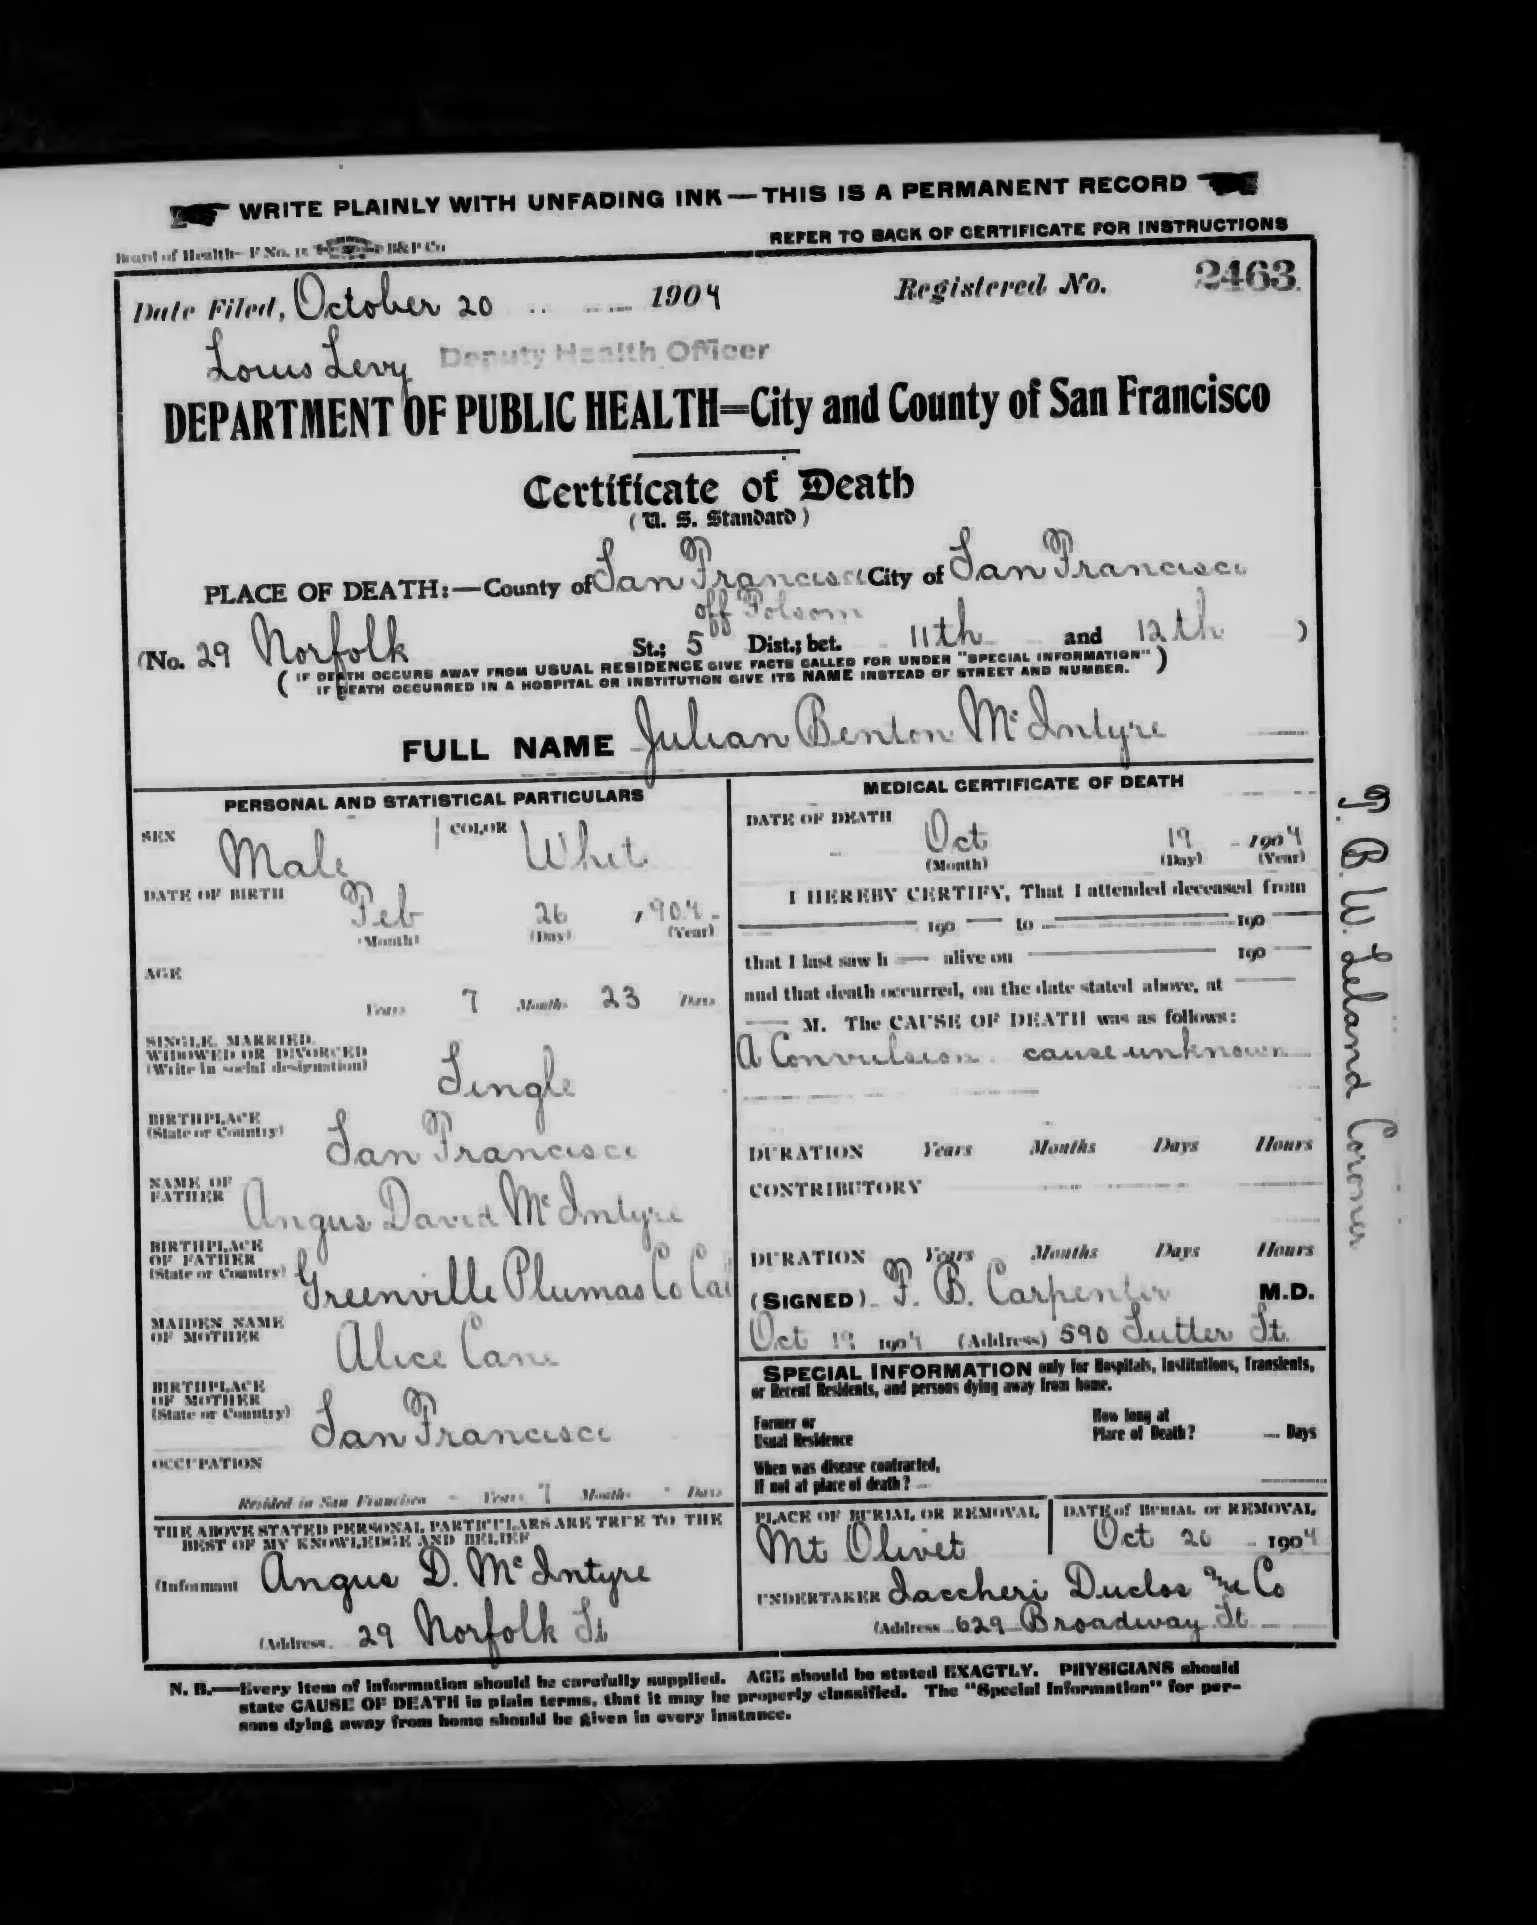 WRITE PLAINLY WITH UNFADING INK—THIS IS A PERMANENT RECORD
Board of Health—F No. 15 B&P Co
REFER TO BACK OF CERTIFICATE FOR INSTRUCTIONS
Date Filed, October 20 1904 Registered No. 2463
Louis Levy Deputy Health Officer
DEPARTMENT OF PUBLIC HEALTH=City and County of San Francisco
Certificate of Death
(U. S. Standard)
PLACE OF DEATH:—County of San Francisco City of San Francisco
off Folsom
(No. 29 Norfolk St.; 5 Dist.; bet. 11th and 12th )
( IF DEATH OCCURS AWAY FROM USUAL RESIDENCE GIVE FACTS CALLED FOR UNDER "SPECIAL INFORMATION" )
IF DEATH OCCURRED IN A HOSPITAL OR INSTITUTION GIVE ITS NAME INSTEAD OF STREET AND NUMBER.
FULL NAME Julian Benton McIntyre
PERSONAL AND STATISTICAL PARTICULARS
SEX Male COLOR Whit
DATE OF BIRTH Feb 26 , 904
(Month) (Day) (Year)
AGE
Years 7 Months 23 Days
SINGLE, MARRIED,
WIDOWED OR DIVORCED
(Write in social designation) Single
BIRTHPLACE
(State or Country) San Francisco
NAME OF
FATHER Angus David McIntyre
BIRTHPLACE
OF FATHER
(State or Country) Greenville Plumas Co Cal
MAIDEN NAME
OF MOTHER Alice Cane
BIRTHPLACE
OF MOTHER
(State or Country) San Francisco
OCCUPATION
Resided in San Francisco - Years 7 Months - Days
THE ABOVE STATED PERSONAL PARTICULARS ARE TRUE TO THE
BEST OF MY KNOWLEDGE AND BELIEF
(Informant Angus D. McIntyre
(Address 29 Norfolk St
MEDICAL CERTIFICATE OF DEATH
DATE OF DEATH
Oct 19 1904
(Month) (Day) (Year)
I HEREBY CERTIFY, That I attended deceased from
190 to 190
that I last saw h alive on 190
and that death occurred, on the date stated above, at
M. The CAUSE OF DEATH was as follows:
A Convulsion cause unknown
DURATION Years Months Days Hours
CONTRIBUTORY
DURATION Years Months Days Hours
(SIGNED) F. B. Carpenter M.D.
Oct 19 1904 (Address) 590 Sutter St.
SPECIAL INFORMATION only for Hospitals, Institutions, Transients,
or Recent Residents, and persons dying away from home.
Former or
Usual Residence
How long at
Place of Death? Days
When was disease contracted,
If not at place of death?
PLACE OF BURIAL OR REMOVAL DATE of BURIAL or REMOVAL
Mt Olivet Oct 20 1904
UNDERTAKER Iaccheri Duclos and Co
(Address 629 Broadway St
N. B.—Every item of information should be carefully supplied. AGE should be stated EXACTLY. PHYSICIANS should
state CAUSE OF DEATH in plain terms, that it may be properly classified. The "Special Information" for per-
sons dying away from home should be given in every instance.
T. B. W. Leland Coroner